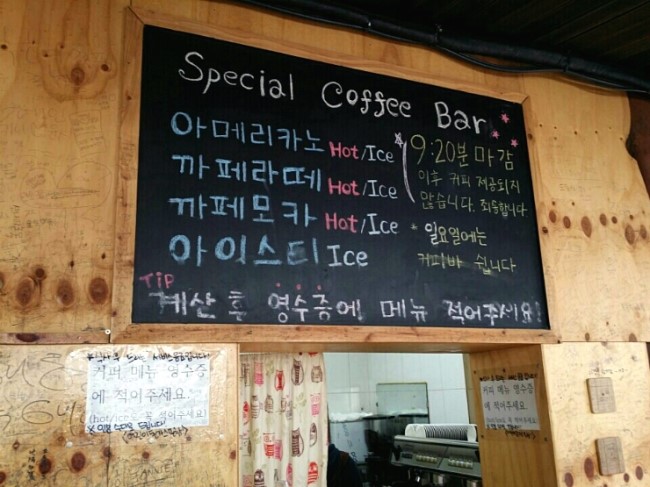 Special Coffee Bar
아메리카노 Hot/Ice
까페라떼 Hot/Ice
까페모카 Hot/Ice
아이스티 Ice
9:20분 마감
이후 커피 제공되지
않습니다. 죄송합니다
* 일요일에는
커피바 쉽니다
TIP
계산 후 영수증에 메뉴 적어주세요!
커피 메뉴 영수증
에 적어주세요.
(hot/ice도 꼭 적어주세요)
커피 메뉴 영수증
에 적어주세요.